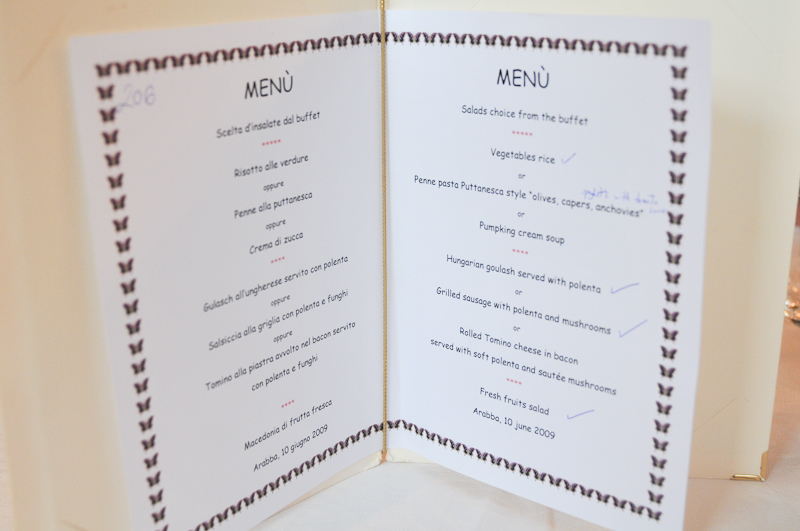 206
MENÙ
Scelta d'insalate dal buffet
*****
Risotto alle verdure
oppure
Penne alla puttanesca
oppure
Crema di zucca
****
Gulasch all'ungherese servito con polenta
oppure
Salsiccia alla griglia con polenta e funghi
oppure
Tomino alla piastra avvolto nel bacon servito
con polenta e funghi
****
Macedonia di frutta fresca
Arabba, 10 giugno 2009
MENÙ
Salads choice from the buffet
*****
Vegetables rice
or
Penne pasta Puttanesca style "olives, capers, anchovies"
or
Pumpking cream soup
****
Hungarian goulash served with polenta
or
Grilled sausage with polenta and mushrooms
or
Rolled Tomino cheese in bacon
served with soft polenta and sautée mushrooms
****
Fresh fruits salad
Arabba, 10 june 2009